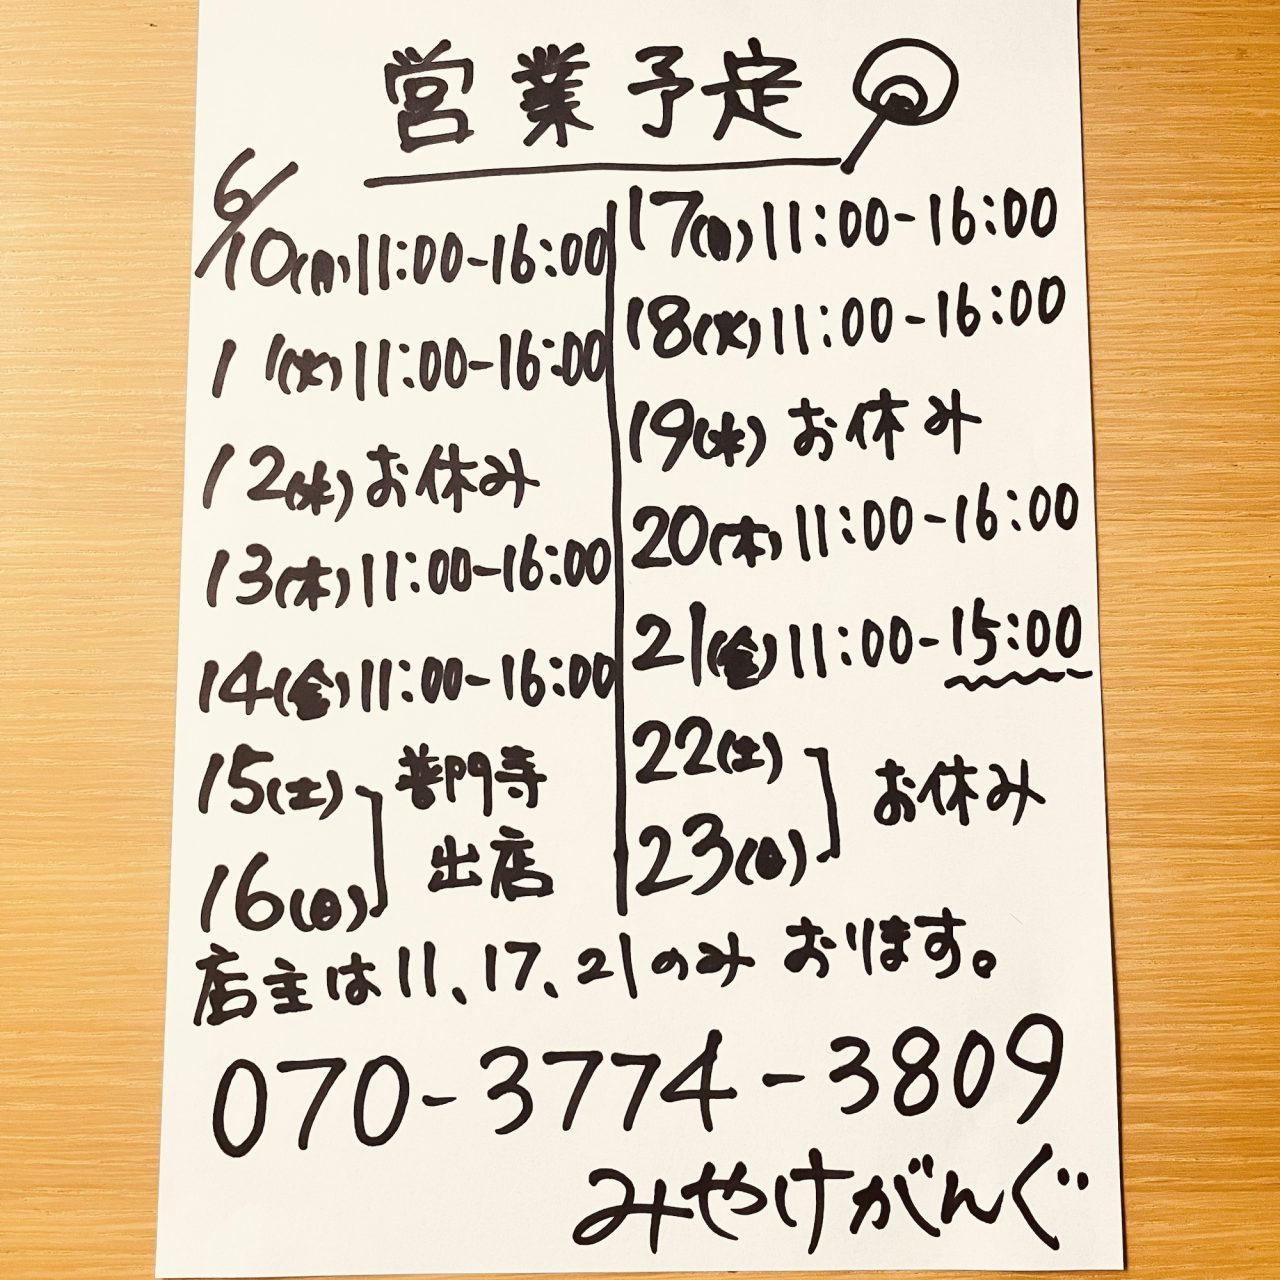 営業予定
6/10(月)11:00-16:00
11(火)11:00-16:00
12(水)お休み
13(木)11:00-16:00
14(金)11:00-16:00
15(土)
16(日)
普門寺
出店
17(月)11:00-16:00
18(火)11:00-16:00
19(水)お休み
20(木)11:00-16:00
21(金)11:00-15:00
22(土)
23(日)
お休み
店主は11、17、21のみおります。
070-3774-3809
みやけがんぐ